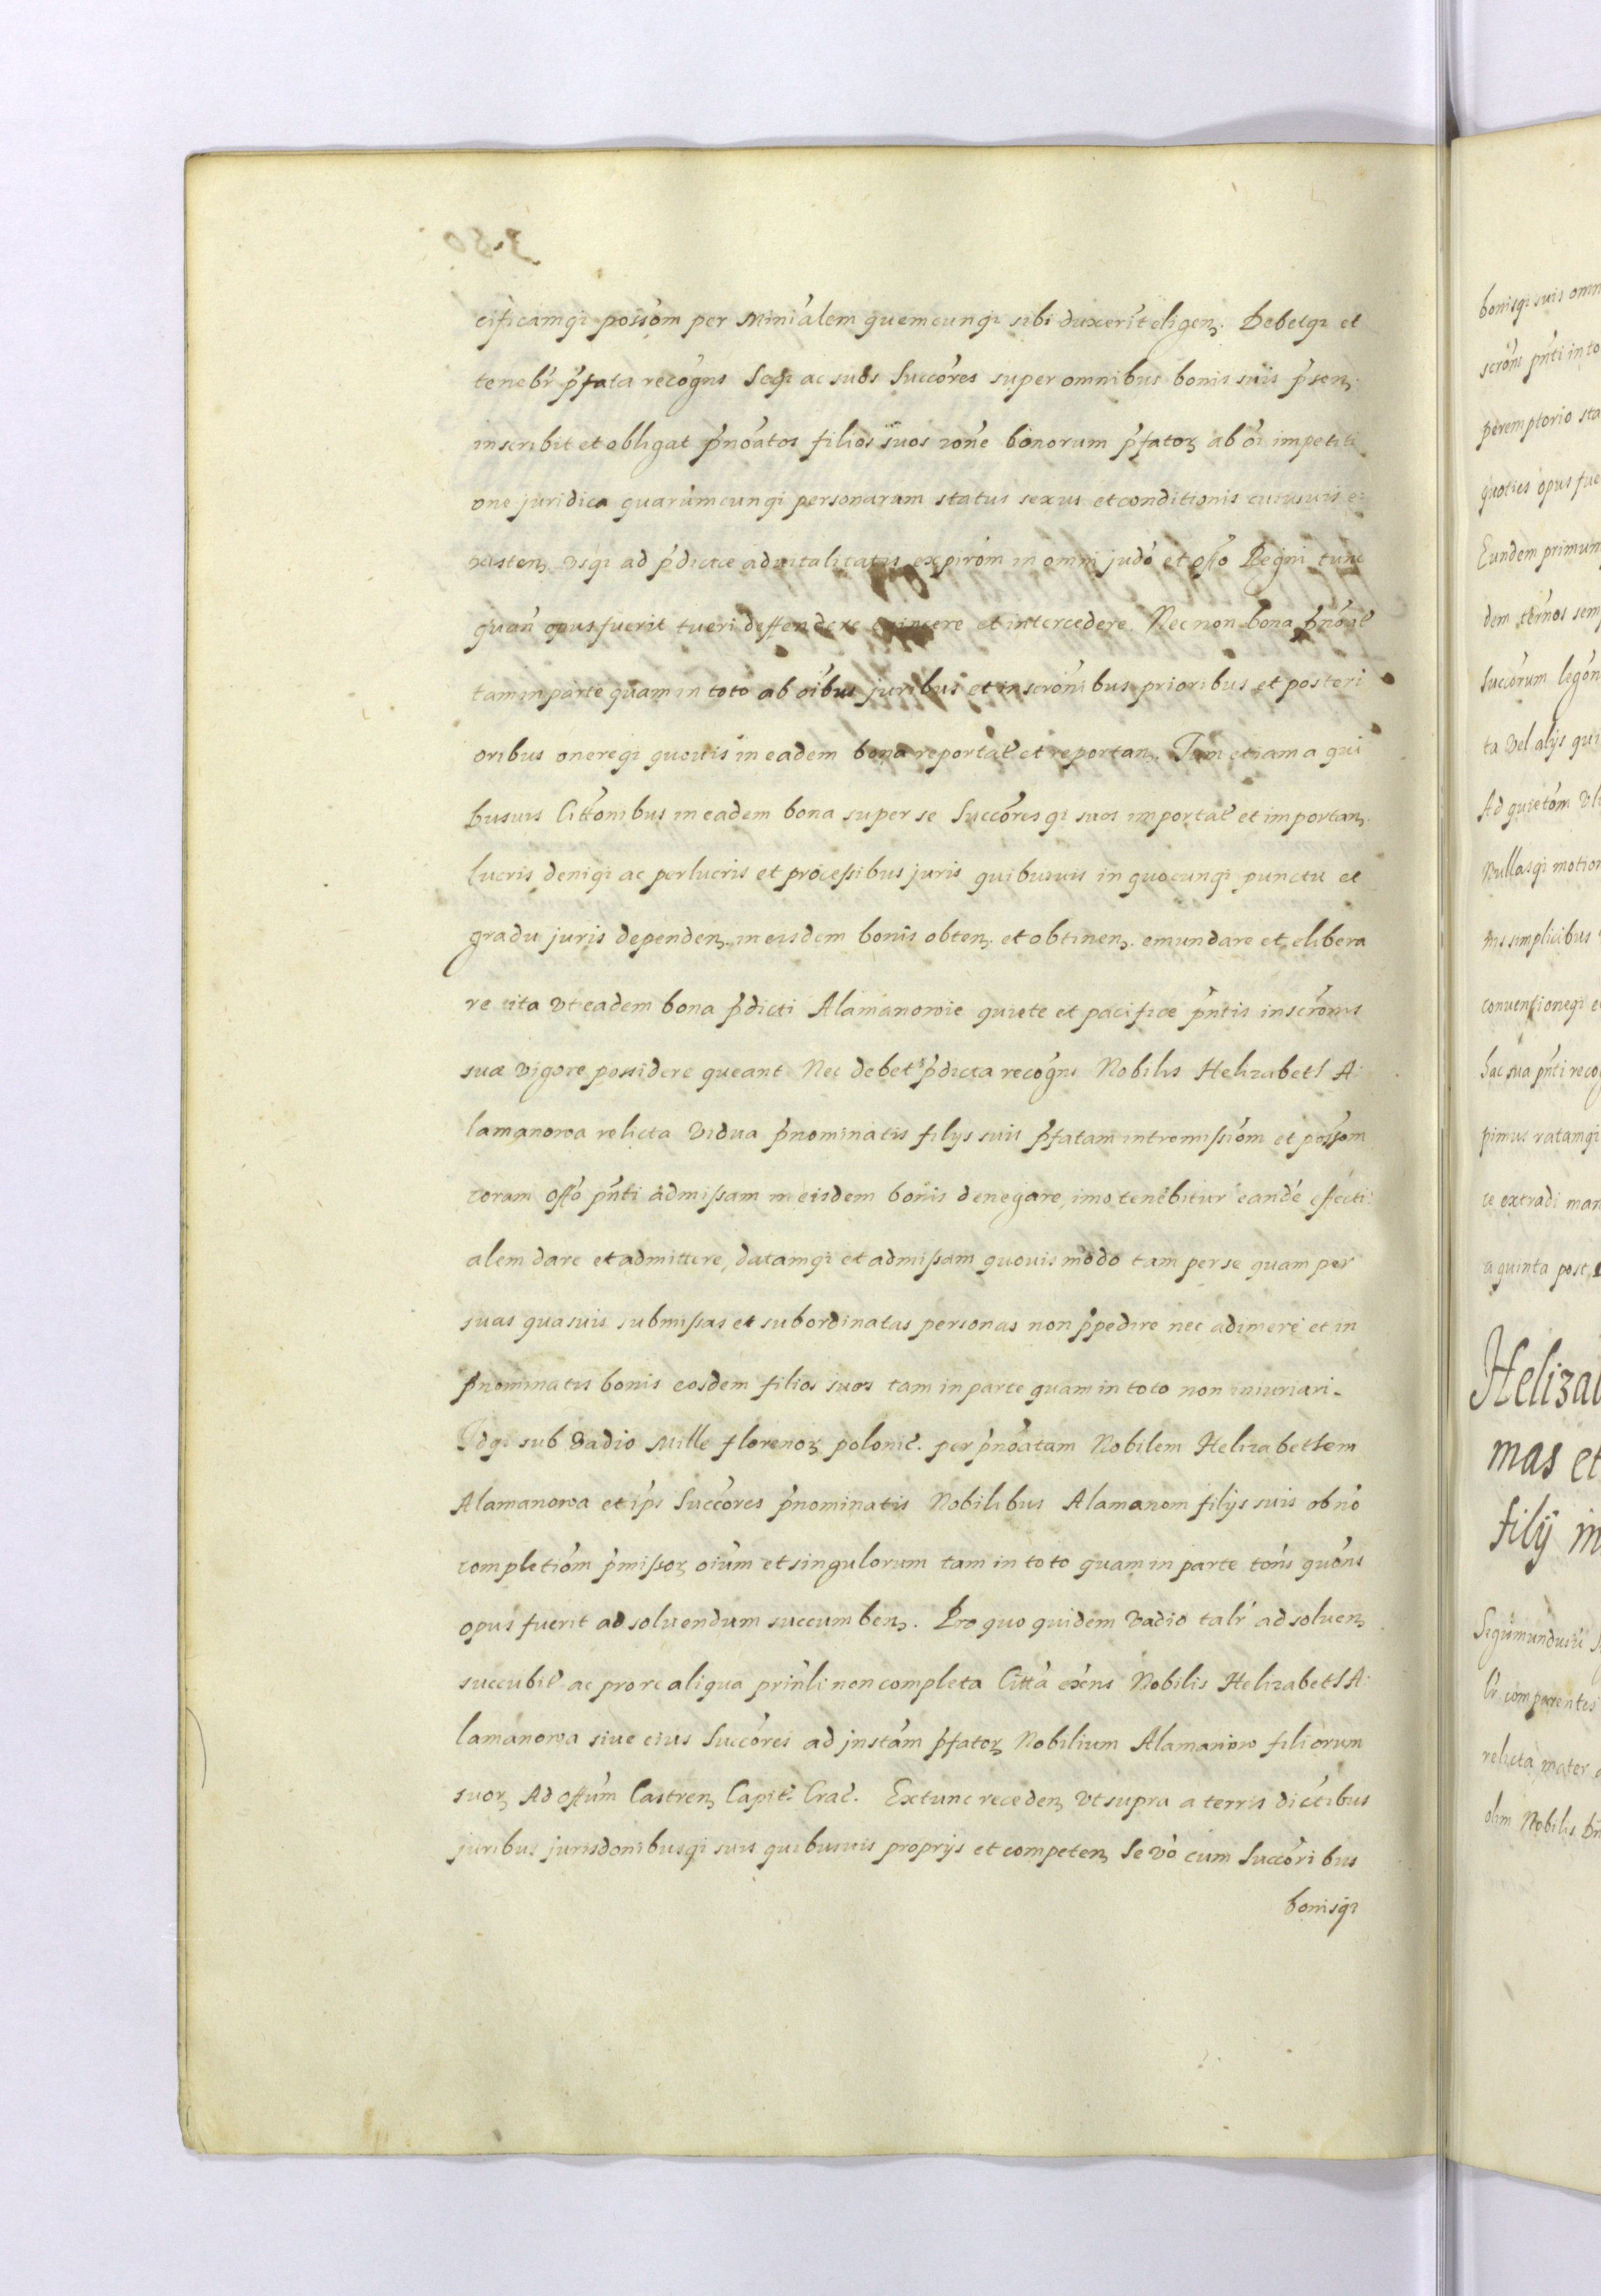 cificamqз possōm per Minīalem quemcunqз sibi duxerīt eligenʒ. Debetqз et
tenebr̄ p̄fata recōgns Seqз ac suos Succōres super omnibus bonis suis p̄senʒ
inscribit et obligat p̄nōatos filios suos rōne bonorum p̄fatoʒ ab oī impetiti
one juridica quarumcunqз personarum status sexus et conditionis cuiusuis e:
xistenʒ Vsqз ad p̄dictæ aduitalitatis expirōm in omni judō et offō Regni tunc
quan̄ opus fuerit tueri deffendere euincere et intercedere. Nec non bona p̄nōat
tam in parte quam in toto ab oībus juribus et inscrōnibus prioribus et posteri
oribus onereqз quouis in eadem bona reportat̄ et reportanʒ. Tum etiam a qui
busuis Cittōnibus in eadem bona super se Succōresqз suos importat̄ et importanʒ.
lucris deniqз ac perlucris et processibus juris quibusuis in quocunqз punctu et
gradu juris dependenʒ. in eisdem bonis obtenʒ. et obtinenʒ. emundare et elibera
re ita Vt eadem bona p̄dicti Alamanowie quiete et pacificæ p̄ntis inscrōnis
suæ Vigore possidere queant Nec debet p̄dicta recōgns Nobilis Helizabeth A:
lamanowa relicta Vidua p̄nominatis filys suis p̄fatam intromissiōm et possōm
coram offō p̄nti admissam in eisdem bonis denegare, imo tenebitur eandē effecti:
alem dare et admittere, datamqз et admissam quouis modo tam per se quam per
suas quasuis submissas et subordinatas personas non p̄pedire nec adimere et in
p̄nominatis bonis eosdem filios suos tam in parte quam in toto non iniuriari.
Idqз sub Vadio Mille florenoʒ polonic̄. per p̄nōatam Nobilem Helizabethem
Alamanowa et ip̄s Succōres p̄nominatis Nobilibus Alamanom filijs suis ob nō
completiōm p̄missoʒ oīum et singulorum tam in toto quam in parte tōns quōns
opus fuerit ad soluendum succumbenʒ. Pro quo quidem Vadio talr̄ ad soluenʒ
succubit̄ ac pro re aliqua prin̄li non completa Cittā exēns Nobilis Helizabeth A:
lamanowa siue eius Succōres ad jnstām p̄fatoʒ Nobilium Alamanow filiorum
suoʒ Ad offūm Castrenʒ Capit̄. Crac̄. Extunc recedenʒ Vt supra a terris dictībus
juribus jurisdōnibusqз suis quibusuis proprijs et competenʒ Se Vō cum Succōribus
bonisqз
bonisqз suis omn
scrōni p̄nti in to
peremptorio sta
quoties opus fue
Eundem primum
dem tērnos sem
Succōrum legōn
ta Vel alijs qui
Ad quietōm Vl
Nullasqз motion
nis simplicibus
conuentioneqз e
hac sua p̄nti reco
pimus ratamqз
te extradi man
a quinta post
Heliza
mas et
filij in
Sigismundus
comparentes
relicta mater
olim Nobilis